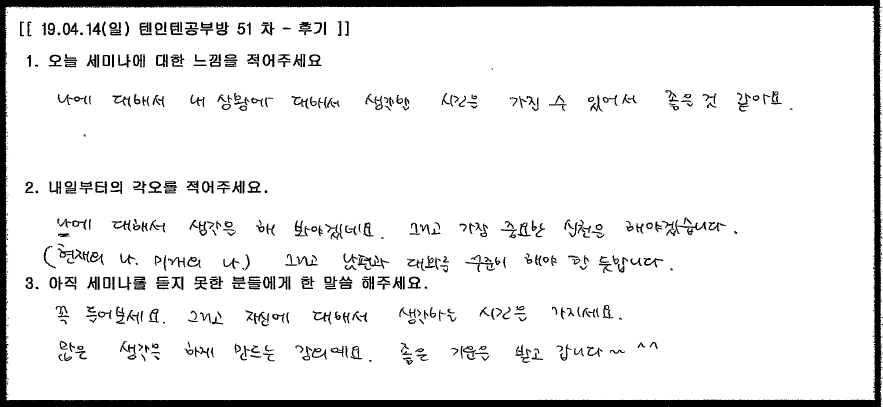 [[ 19.04.14(일) 텐인텐공부방 51 차 - 후기 ]]
1. 오늘 세미나에 대한 느낌을 적어주세요
나에 대해서 내 상황에 대해서 생각할 시간을 가진 수 있어서 좋은 것 같아요.
2. 내일부터의 각오를 적어주세요.
나에 대해서 생각을 해 봐야겠네요. 그리고 가장 중요한 실천을 해야겠습니다.
(현재의 나. 미래의 나.) 그리고 남편과 대화를 꾸준히 해야 할 듯합니다.
3. 아직 세미나를 듣지 못한 분들에게 한 말씀 해주세요.
꼭 들어보세요. 그리고 자신에 대해서 생각하는 시간을 가지세요.
많은 생각을 하게 만드는 강의예요. 좋은 기운을 받고 갑니다~ ^^